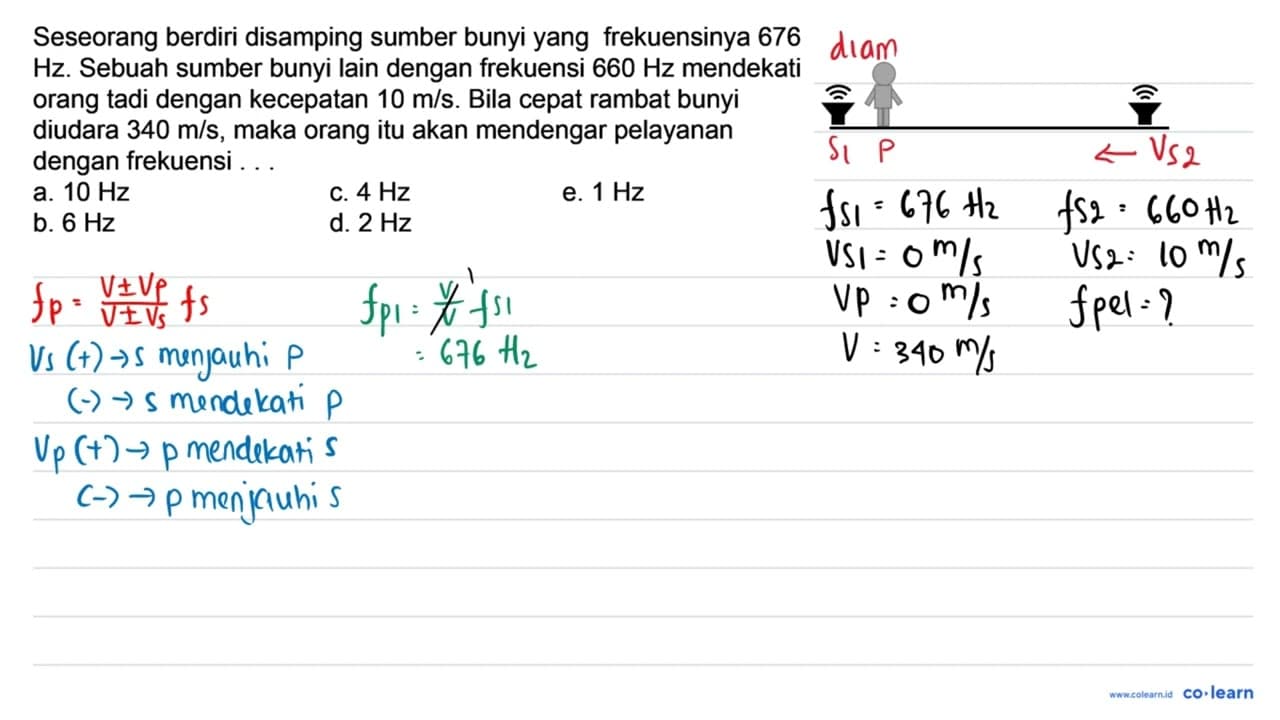 Seseorang berdiri disamping sumber bunyi yang frekuensinya 676
Hz. Sebuah sumber bunyi lain dengan frekuensi 660 Hz mendekati
orang tadi dengan kecepatan 10 m/s. Bila cepat rambat bunyi
diudara 340 m/s, maka orang itu akan mendengar pelayanan
dengan frekuensi . . .
a. 10 Hz c. 4 Hz e. 1 Hz
b. 6 Hz d. 2 Hz
diam
S1 P ← Vs2
fs1 = 676 Hz fs2 = 660 Hz
Vs1 = 0 m/s Vs2 = 10 m/s
Vp = 0 m/s fpel = ?
V = 340 m/s
fp = (V ± Vp)/(V ± Vs) fs
Vs (+) → s menjauhi p
(-) → s mendekati p
Vp (+) → p mendekati s
(-) → p menjauhi s
fp1 = V/V 1 fs1
= 676 Hz
www.colearn.id co·learn